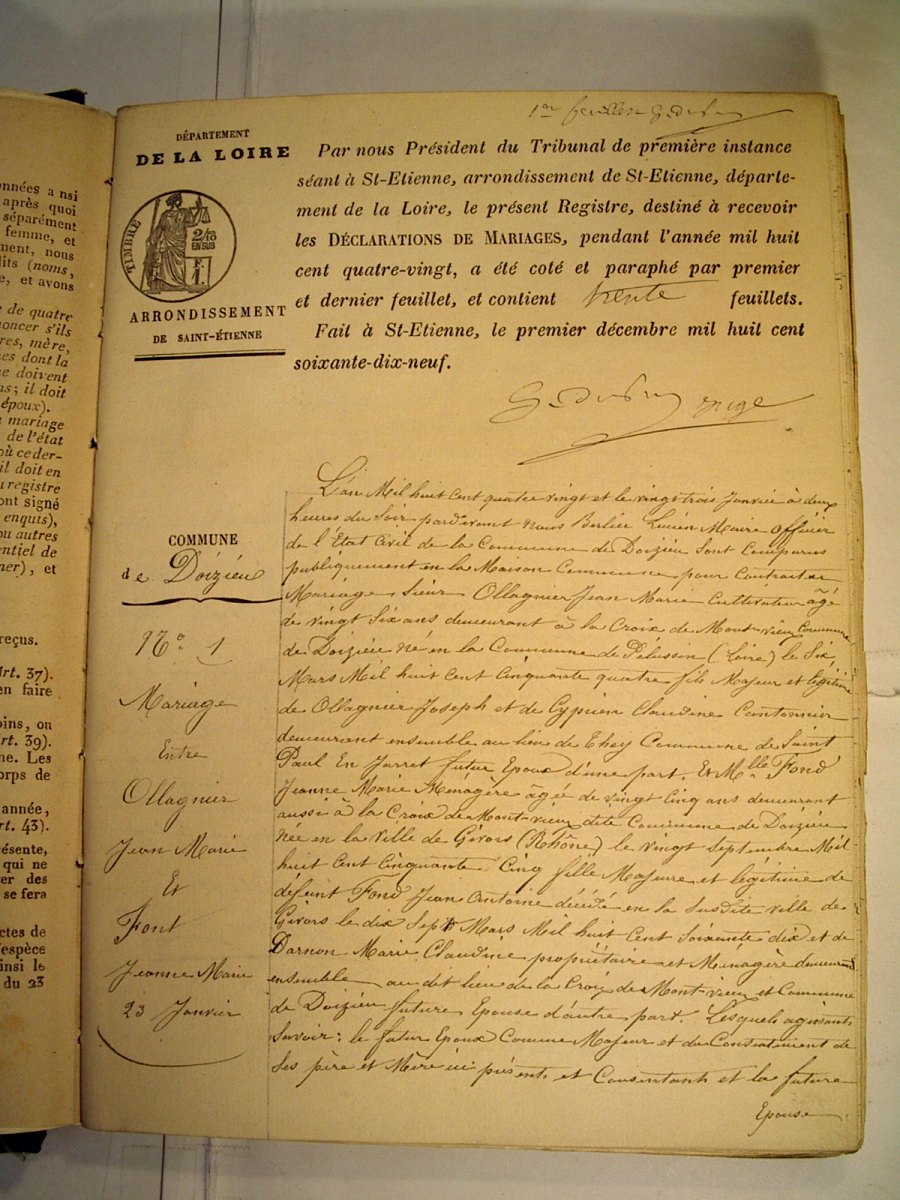 onnées a nsi
après quoi
séparément
femme, et
nent, nous
lits (noms,
e, et avons
de quatre
oncer s'ils
res, mère,
es dont la
e doivent
ns; il doit
époux).
u mariage
de l'état
où ce der-
il doit en
u registre
ont signé
enquis),
ou autres
entiel de
ner), et
reçus.
Art. 37).
en faire
oins, on
rt. 39).
ne. Les
orps de
année,
rt. 43).
résente,
qui ne
er des
se fera
ctes de
'espèce
insi le
du 23
1er feuillet
DÉPARTEMENT
DE LA LOIRE
TIMBRE
2/10
EN SUS
ARRONDISSEMENT
DE SAINT-ÉTIENNE
Par nous Président du Tribunal de première instance
séant à St-Etienne, arrondissement de St-Etienne, départe-
ment de la Loire, le présent Registre, destiné à recevoir
les DÉCLARATIONS DE MARIAGES, pendant l'année mil huit
cent quatre-vingt, a été coté et paraphé par premier
et dernier feuillet, et contient trente feuillets.
Fait à St-Etienne, le premier décembre mil huit cent
soixante-dix-neuf.
COMMUNE
de Doizieu
No 1
Mariage
Entre
Ollagnier
Jean Marie
Et
Font
Jeanne Marie
23 Janvier
L'an Mil huit Cent quatre vingt et le vingt trois Janvier à deux
heures du Soir pardevant Nous Berlier Lucien Maire Officier
de l'État Civil de la Commune de Doizieu sont Comparus
publiquement en la Maison Commune pour Contracter
Mariage Sieur Ollagnier Jean Marie Cultivateur âgé
de vingt Six ans demeurant à la Croix de Mont-vieux Commune
de Doizieu Né en la Commune de Pélussin (Loire) le Six
Mars Mil huit Cent Cinquante quatre fils Majeur et légitime
de Ollagnier Joseph et de Cyprien Claudine Cantonnier
demeurant ensemble au lieu de Commune de Saint
Paul En Jarret futur Epoux d'une part. Et Mlle Fond
Jeanne Marie Ménagère âgée de vingt Cinq ans demeurant
aussi à la Croix de Mont-vieux dite Commune de Doizieu
Née en la ville de Givors (Rhône) le vingt Septembre Mil
huit Cent Cinquante Cinq fille Majeure et légitime de
défunt Fond Jean Antoine décédé en la Susdite ville de
Givors le dix Sept Mars Mil huit Cent Soixante dix et de
Darnon Marie Claudine propriétaire et Menagère demeurant
ensemble au dit lieu de la Croix de Mont-vieux et Commune
de Doizieu future Epouse d'autre part. Lesquels agissants
Savoir: le futur Epoux Comme Majeur et du Consentement de
Ses père et Mère ici présents et Consentants et la future
Epouse